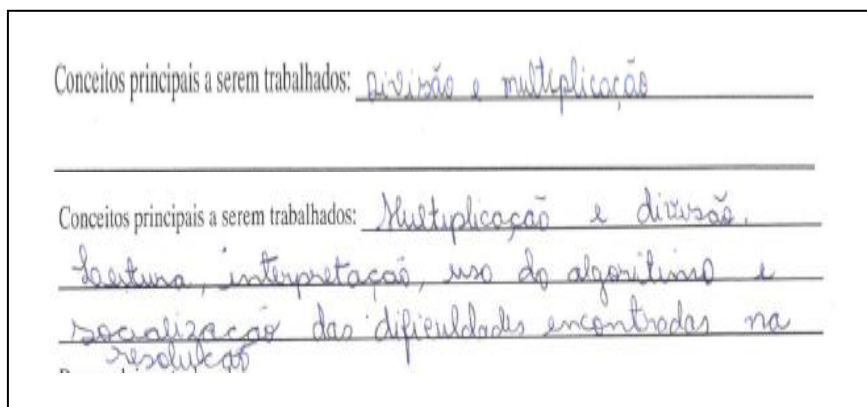 Conceitos principais a serem trabalhados: Divisão e multiplicação
Conceitos principais a serem trabalhados: Multiplicação e divisão.
Leitura, interpretação, uso do algoritimo e
socialização das dificuldades encontradas na
resolução